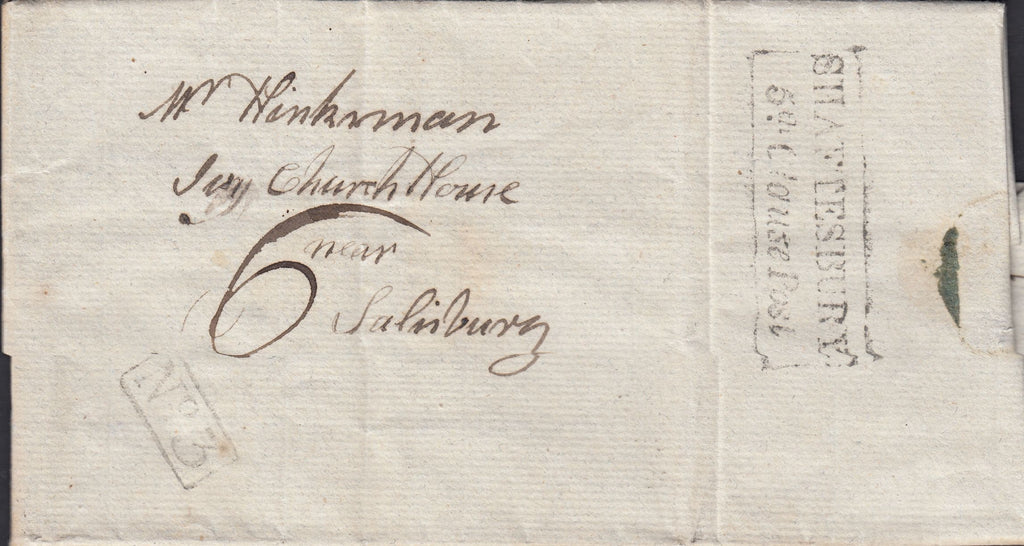 Mr Hinkman
Ivy Church House
near
6
Salisbury
No 3
SHAFTESBURY
Penny Post